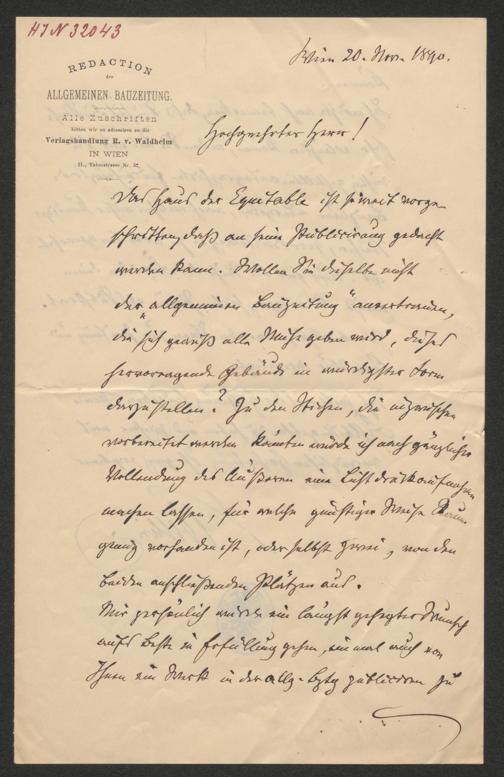 HIN 32043
Wien 20. Nov. 1890.
REDACTION
der
ALLGEMEINEN BAUZEITUNG.
Alle Zuschriften
bitten wir zu adressiren an die
Verlagshandlung R. v. Waldheim
IN WIEN
II., Taborstrasse Nr. 52.
Hochgeehrter Herr!
Das Haus der Equitable ist soweit vorge-
schritten, daß an seine Publicirung gedacht
werden kann. Wollen Sie dieselbe nicht
der „allgemeinen Bauzeitung" anvertrauen,
die sich gewiß alle Mühe geben wird, dieses
hervorragende Gebäude in würdigster Form
darzustellen? Zu den Stichen, die inzwischen
vorbereitet werden könnten würde ich nach gänzlicher
Vollendung des Äußeren eine Lichtdruckaufnahme
machen lassen, für welche günstiger Weise Raum
genug vorhanden ist, oder selbst zwei, von den
beiden anschließenden Plätzen aus.
Mir persönlich würde ein längst gehegter Wunsch
aufs Beste in Erfüllung gehen, einmal auch von
Ihnen ein Werk in der allg. Bztg publiciren zu